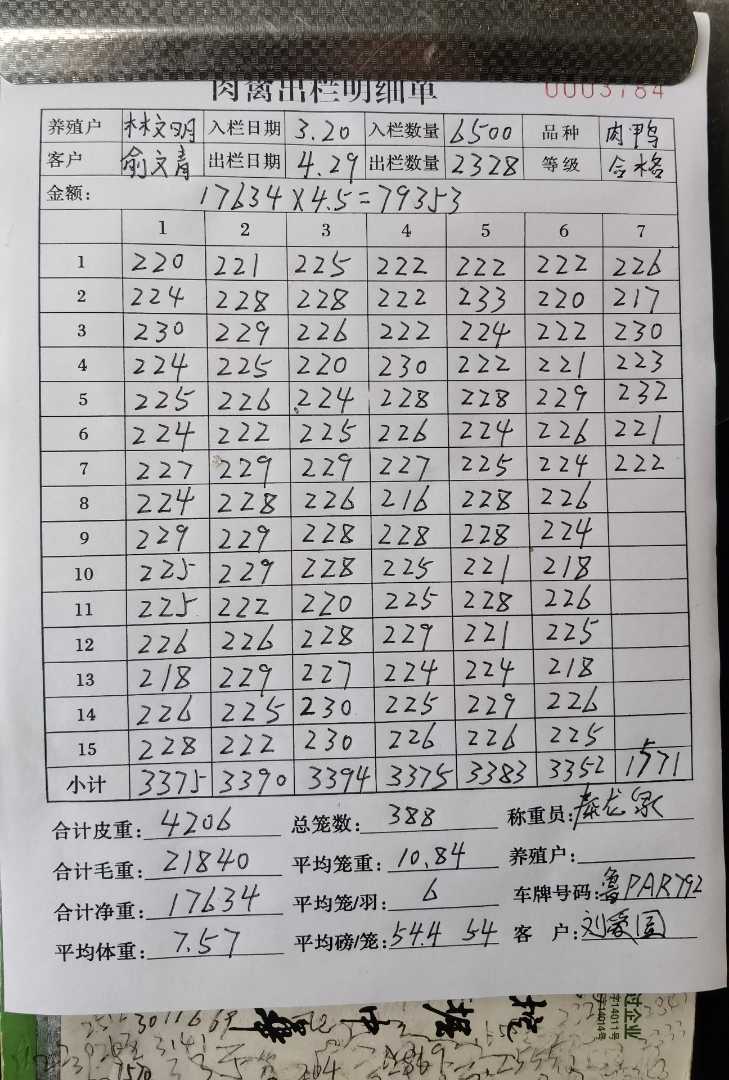 肉禽出栏明细单 0003784
养殖户 林文明 入栏日期 3.20 入栏数量 6500 品种 肉鸭
客户 俞文青 出栏日期 4.29 出栏数量 2328 等级 合格
金额: 17634×4.5=79353
1 2 3 4 5 6 7
1 220 221 225 222 222 222 226
2 224 228 228 222 233 220 217
3 230 229 226 222 224 222 230
4 224 225 220 230 222 221 223
5 225 226 224 228 228 229 232
6 224 222 225 226 224 226 221
7 227 229 229 227 225 224 222
8 224 228 226 216 228 226
9 229 229 228 228 228 224
10 225 229 228 225 221 218
11 225 222 220 225 228 226
12 226 226 228 229 221 225
13 218 229 227 224 224 218
14 226 225 230 225 229 226
15 228 222 230 226 226 225
小计 3375 3390 3394 3375 3383 3352 1571
合计皮重: 4206 总笼数: 388 称重员:
合计毛重: 21840 平均笼重: 10.84 养殖户:
合计净重: 17634 平均笼/羽: 6 车牌号码: 鲁PAR792
平均体重: 7.57 平均磅/笼: 54.4 54 客 户: 刘爱国
过企业